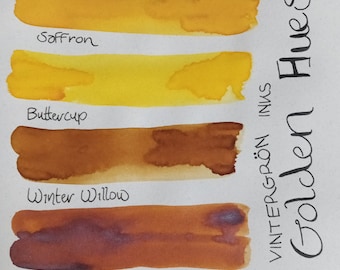 Saffron
Buttercup
Winter Willow
VINTERGRÖN INKS
Golden Hues